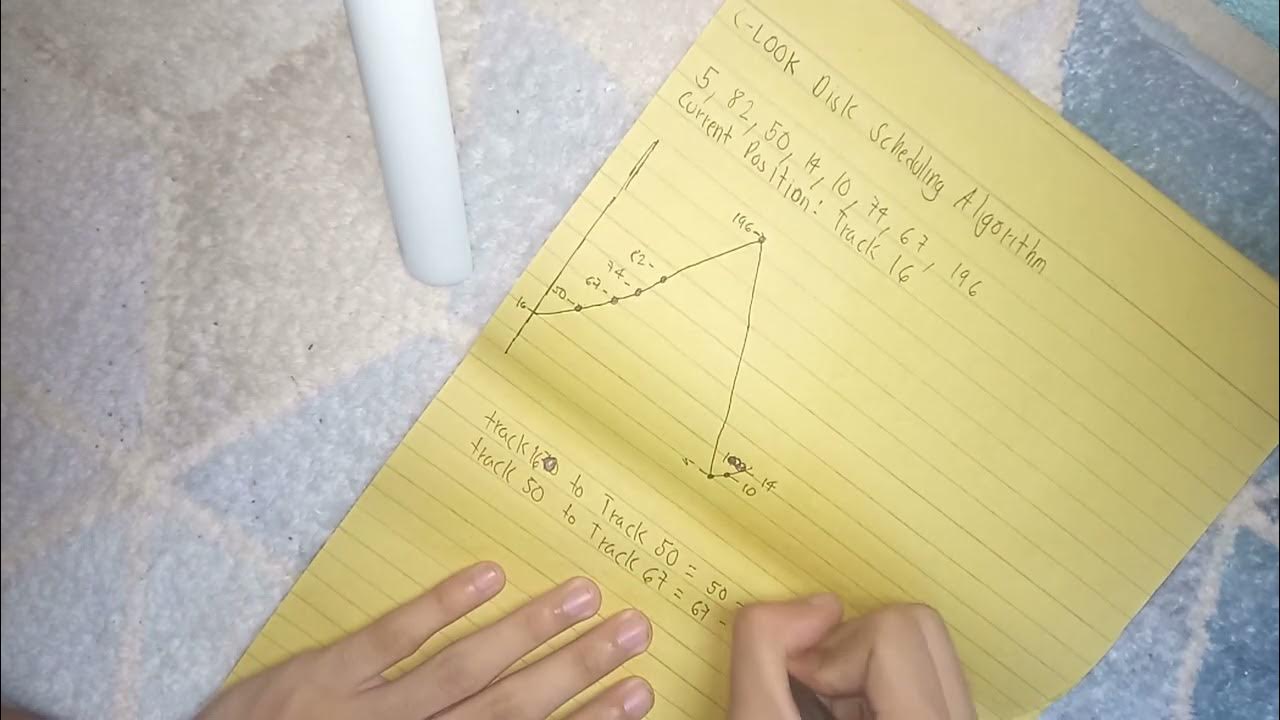 C-LOOK Disk Scheduling Algorithm
5, 82, 50, 14, 10, 74, 67, 196
Current Position: Track 16
196
82
74
67
50
16
5
14
10
track 16 to Track 50 = 50
track 50 to Track 67 = 67 -